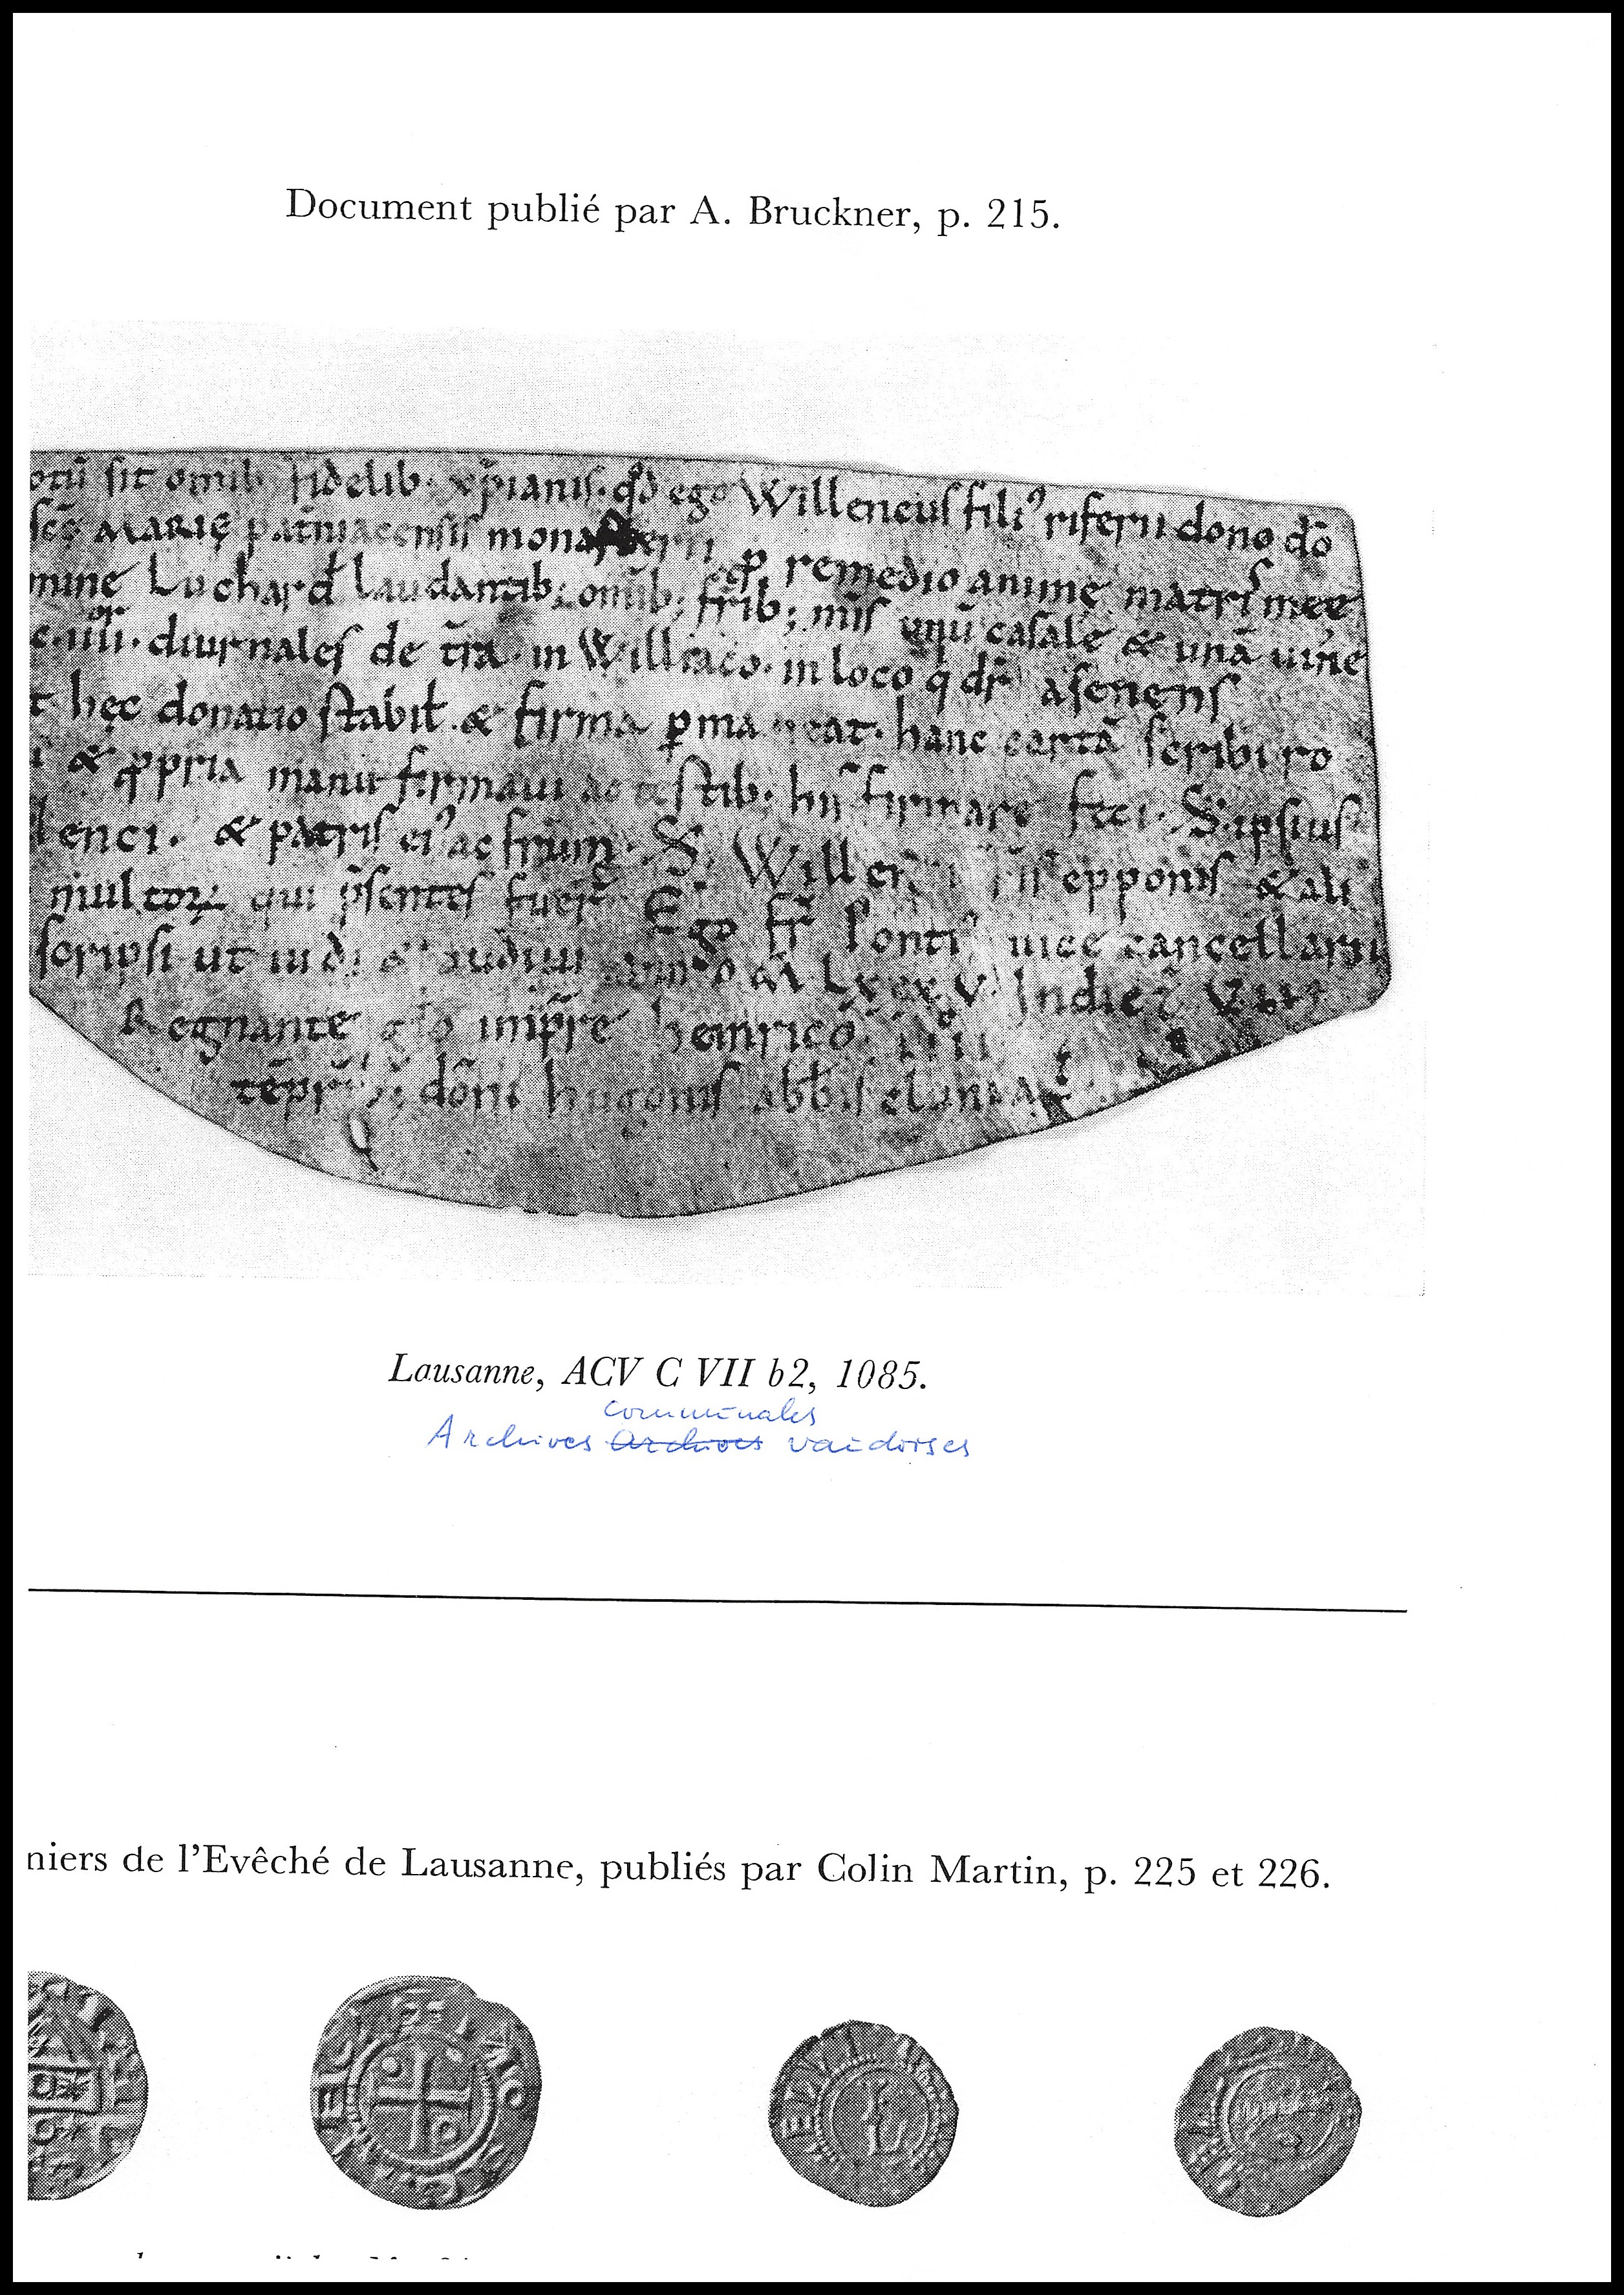 Document publié par A. Bruckner, p. 215.
otū sit omib. fidelib. xp̄ianis. qd ego Willencus filiꝰ riferii dono dō
scę MARIę pat̄niacensis monasterii ꝓ remedio animę matris meę
minę Luchard laudantib; om̄ib; fr̄ib; mīs unū casale & unā uine
e. iiii. or diurnales de t̄ra. in Williaco. in loco q dr̄ asenens
t hęc donatio stabil. & firma ꝑmaneat. hanc cartā scribi ro
i & ꝓpria manu firmaui ac testib; hiis firmare feci. S. ipsius
lenci. & patris eiꝰ ac fr̄um. S. Willer epponis & ali
multoꝝ qui p̄sentes fuer̄ Ego fr̄ Pontiꝰ uice cancellarii
scripsi ut uidi & audiui anno M LXXX V. Indict̄
Regnante impr̄e heinrico IIII
dōni hugonis abb̄is
Lausanne, ACV C VII b2, 1085.
communales
Archives Archives vaudoises
niers de l'Evêché de Lausanne, publiés par Colin Martin, p. 225 et 226.